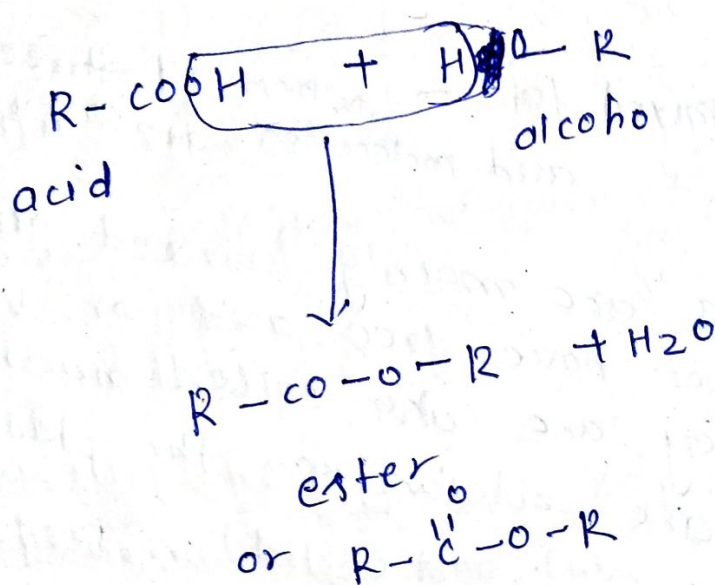 R - COOH + HO - R
acid alcoho
R - CO - O - R + H2O
ester
or R - C - O - R
O